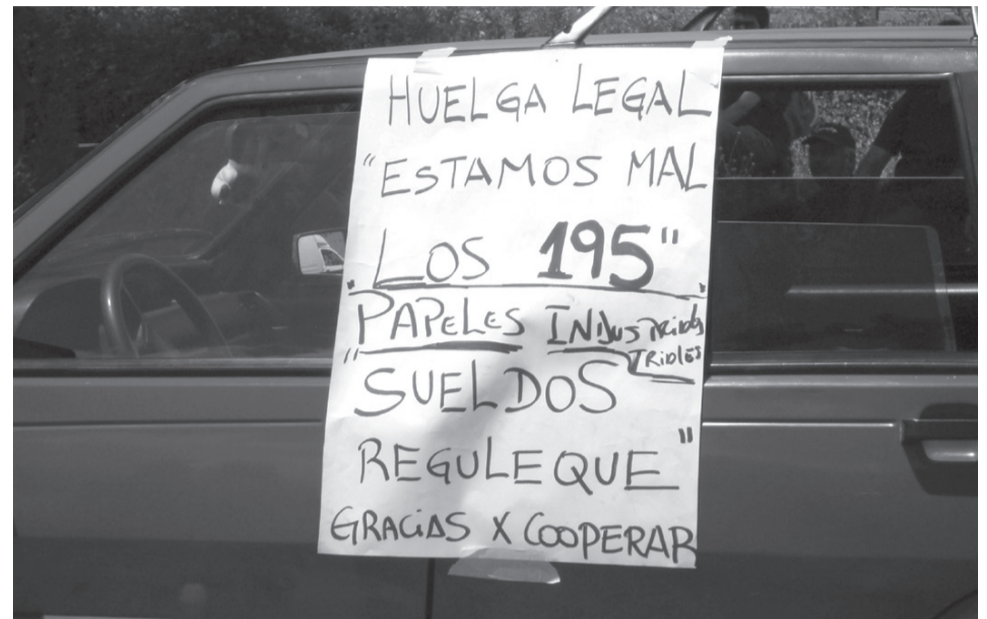 HUELGA LEGAL
"ESTAMOS MAL
LOS 195"
PAPELES INDUSTRIALES
TRIALES
"SUELDOS
REGULEQUE"
GRACIAS X COOPERAR